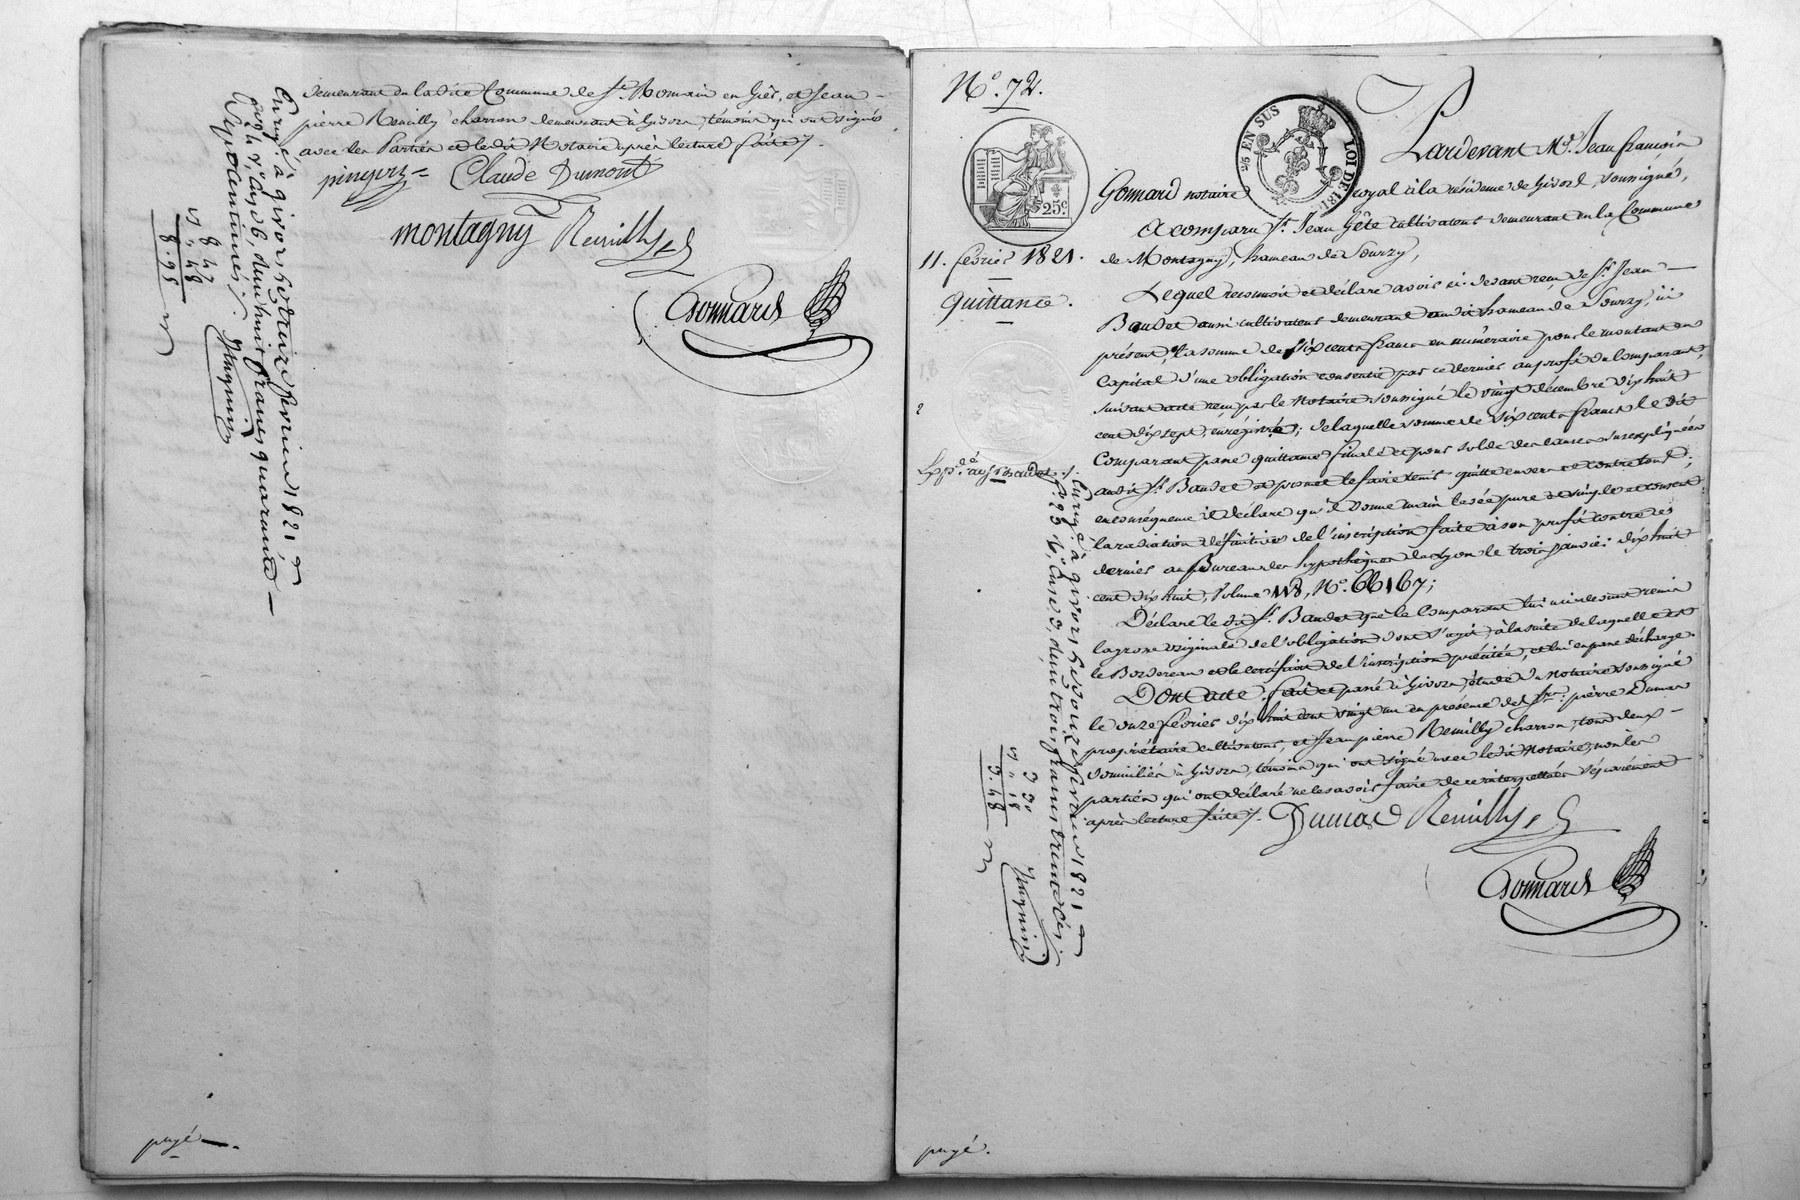 demeurant en la dite Commune de St. Romain en Giér, et Jean
pierre Remilly charron demeurant à Givors, témoins qui ont signés
avec les Parties et le dit Notaire après lecture faite /.
pingeon Claude Dumont
montagny Remilly
Gonnard
Enreg. à givors le douze fevrier 1821,
huit francs quarante
7 centimes /.
8 47
" 48
8. 95
payé
N°. 72.
25c.
25 EN SUS
LOI DE 181
11. fevrier 1821.
Quittance.
2
Exp. au Sr. Baudet /.
Pardevant Me. Jean françois
Gonnard notaire royal à la résidence de Givors, soussigné,
A comparu Sr. Jean Gête cultivateur demeurant en la Commune
de Montagny, hameau de Sourzy,
Lequel reconnoit et déclare avoir ci-devant reçu de Sr. Jean
Baudet aussi cultivateur demeurant audit hameau de Sourzy, ici
présent, la somme de Six cents francs en numéraire pour le montant en
Capital d'une obligation consentie par ce dernier au profit du Comparant,
suivant acte reçu par le Notaire soussigné le vingt décembre dix huit
cent dix sept, enregistré; de laquelle somme de six cents francs le dit
Comparant passe quittance finale et pour solde des causes susexpliquées
audit Sr. Baudet et promet le faire tenir quitte envers et contre tous;
en conséquence il déclare qu'il donne main levée pure et simple et consent
la radiation définitive de l'inscription faite à son profit contre ce
dernier au Bureau des hypothèques de Lyon le trois janvier dix huit
cent dix huit, Volume 118, N°. 66167;
Déclare le dit Sr. Baudet que le Comparant lui a ci-devant remis
la grosse originale de l'obligation dont s'agit, à la suite de laquelle est
le Bordereau et le certificat de l'inscription précitée, et lui en passe décharge.
Dont acte. fait et passé à Givors, étude du notaire soussigné
le onze février dix huit cent vingt un en présence de Srs. pierre Dumas
propriétaire cultivateur, et Jean pierre Remilly charron, tous deux
domiciliés à Givors, témoins qui ont signé avec le dit Notaire, non les
parties qui ont déclaré ne le savoir faire de ce interpellées séparément
après lecture faite /. Dumas Remilly
Gonnard
Enreg. à givors le douze fevrier 1821
f°. 25 v°. Case 3, reçu trois francs trente cés.
3 30
" 18
3. 48
payé.